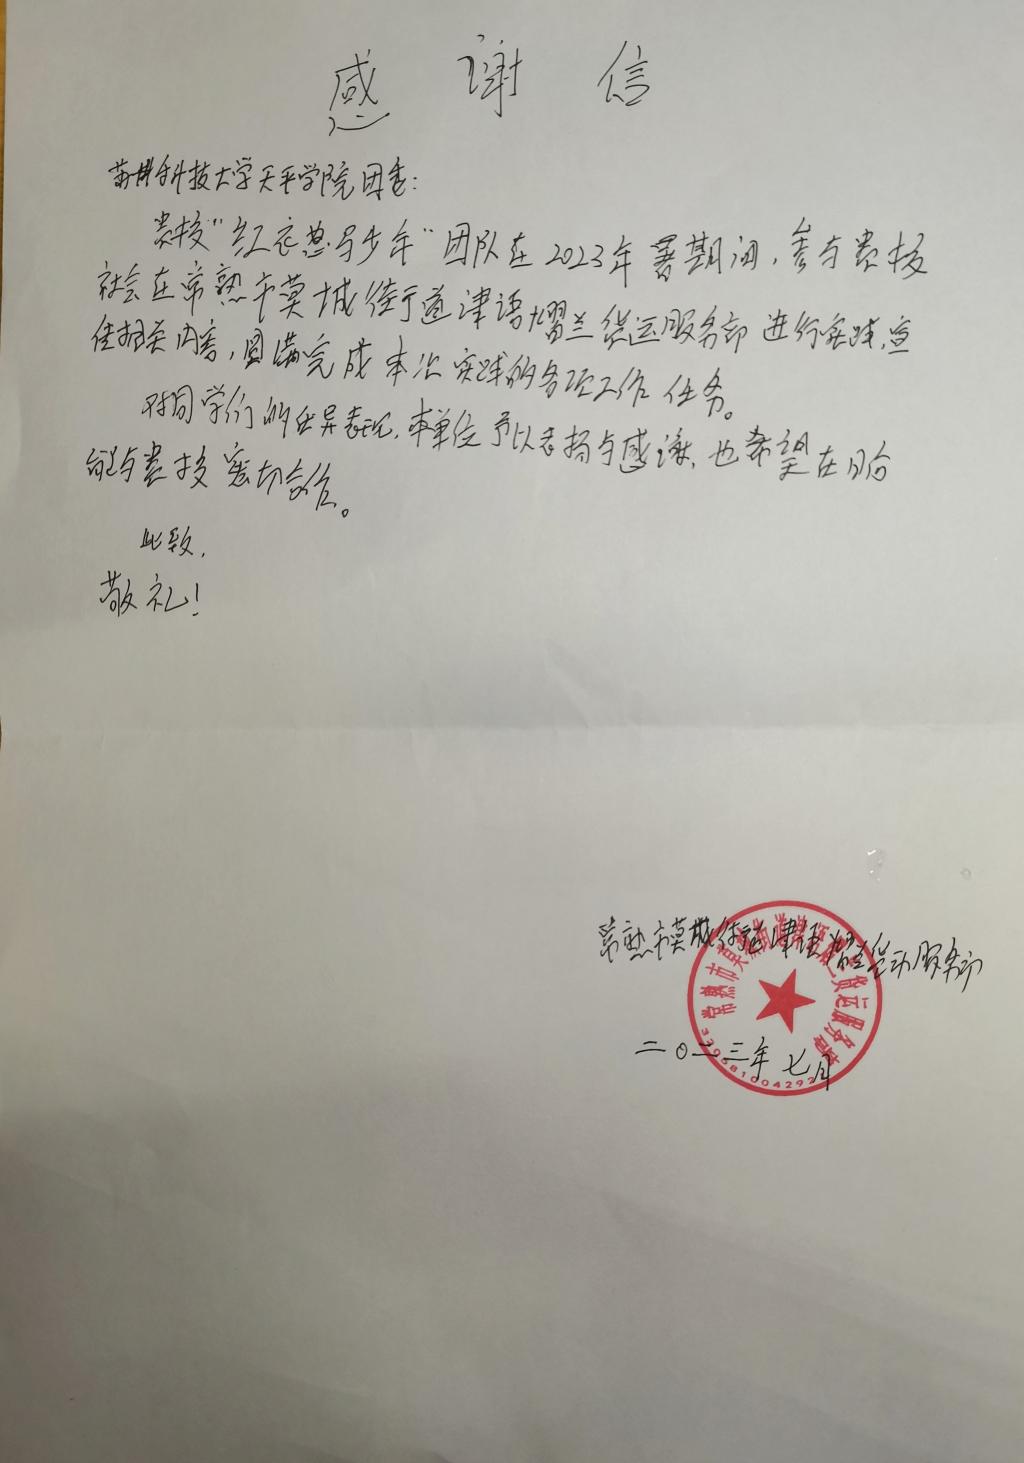 感谢信
苏州科技大学天平学院团委:
贵校“红衣惹马少年”团队在2023年暑期间,参与贵校
社会在常熟市莫城街道津语熠兰货运服务部进行实践,宣
传相关内容,圆满完成本次实践的各项工作任务。
对同学们的优异表现,本单位予以表扬与感谢,也希望在日后
能与贵校密切合作。
此致,
敬礼!
常熟市莫城街道津语熠兰货运服务部
二〇二三年七月